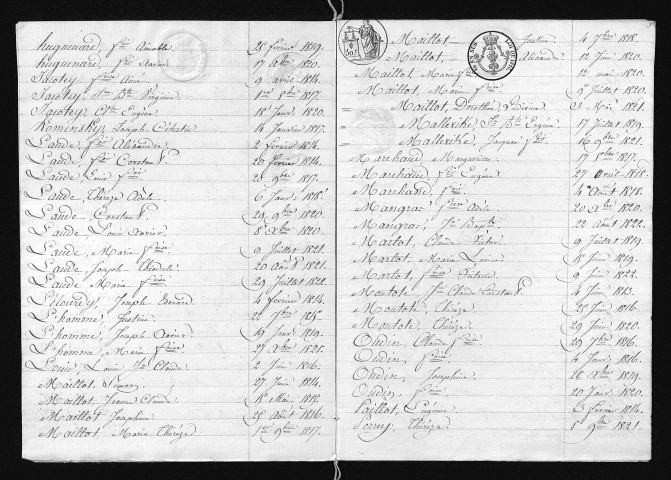 huguenard, fois Aimable 25 février 1819.
huguenard, fois Xavier 17 Xbre 1820.
Jacotey, foise Aimé 9 avril 1814.
Jacotey, Jn Bte Virginie 1er 9bre 1817.
Jacotey, Cl. Eugène 18 Janr 1820.
Kominsky, Joseph Célestin 14 Janvier 1817.
Laude, fois Alexandre 2 février 1814.
Laude, fois Constant 20 février 1814.
Laude, Louis fois 20 9bre 1817.
Laude, Thérèze Adèle 6 Janr 1818.
Laude, Constant 29 9bre 1820.
Laude Louis Xavier 8 Xbre 1820.
Laude, Marie foise 9 Juillet 1821.
Laude Joseph Théodule 20 Août 1821.
Laude Marie foise 29 Juillet 1822.
Joseph Edouard 4 février 1814.
L'homme, Justine
L'homme, Joseph Xavier 19 Janr 1819.
L'homme, Marie foise 27 Xbre 1821.
Louis Jh Claude 2 Juin 1816.
Maillot, Simon 27 Juin 1814.
Maillot, Jeanne Claude 18 Mai 1815.
Maillot Josephine 25 Août 1816.
Maillot, Marie Thérèze 1er 9bre 1817.
Maillot Justin 4 7bre 1818.
Maillot, Alexandre 12 Juin 1820.
Maillot, Marie foise 12 mai 1820.
Maillot, Marie foise 9 Juillet 1820.
Maillot, Dorothée 9 Mai 1821.
Mallevilhe, Jn Bte Eugène 17 Juillet 1819.
Mallevilhe, Jacques fois 16 9bre 1821.
Marchand, Marguerite 17 8bre 1817.
Marchand, fois Eugène 27 avril 1818.
Marchand, foise 4 Août 1818.
Mangrac foise Adèle 20 Xbre 1820.
Mangrac, Jn Baptte 22 Août 1822.
Martot, Claude Victor 9 Juillet 1819.
Martot Marie Louise 18 Juin 1819.
Martot, foise Victoire 9 Juin 1822.
Moutote Jn Claude Constant 4 Juin 1813.
Moutote, Thérèze 25 Juin 1816.
Moutote Thérèze 29 Juin 1820.
Oudin, Claude fois 29 7bre 1816.
Oudin, foise 4 Janr 1816.
Oudin, Josephine 28 Xbre 1819.
Oudin, foise 20 Janr 1820.
Paillot Eugène 15 février 1814.
Perruy, Thérèze 5 9bre 1821.